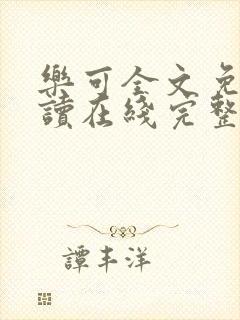 樂可全文免
讀在綫完整
譚丰洋